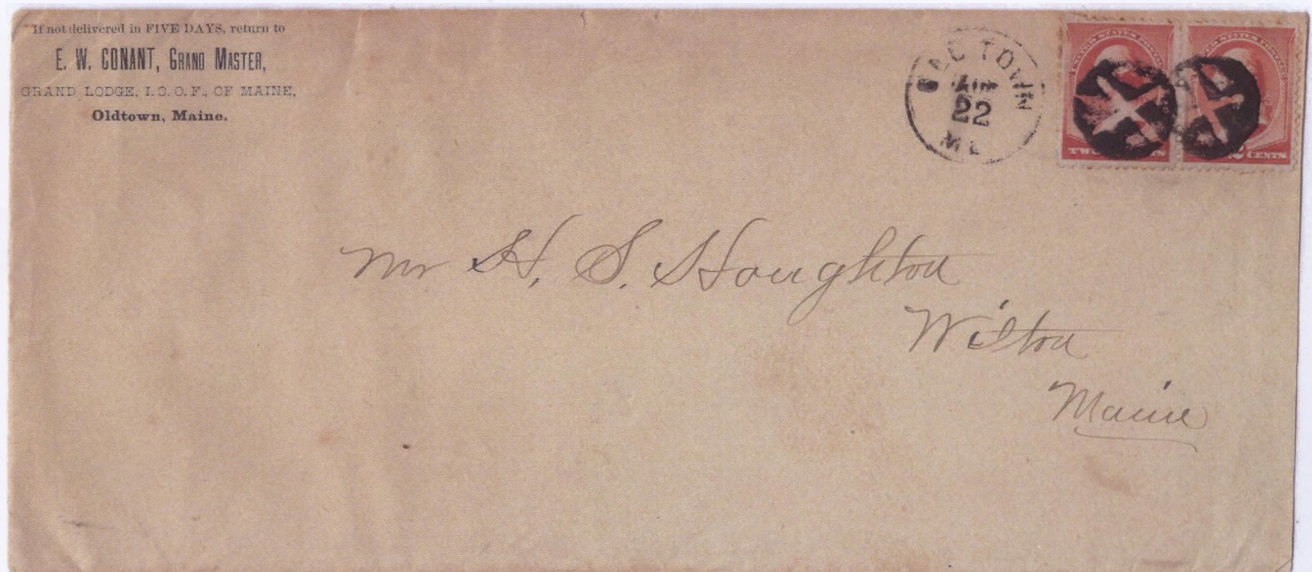 If not delivered in FIVE DAYS, return to
E. W. CONANT, GRAND MASTER,
GRAND LODGE, I. O. O. F., OF MAINE,
Oldtown, Maine.
TOWN
22
ME
TWO
2 CENTS
Mr H. S. Houghton
Wilton
Maine